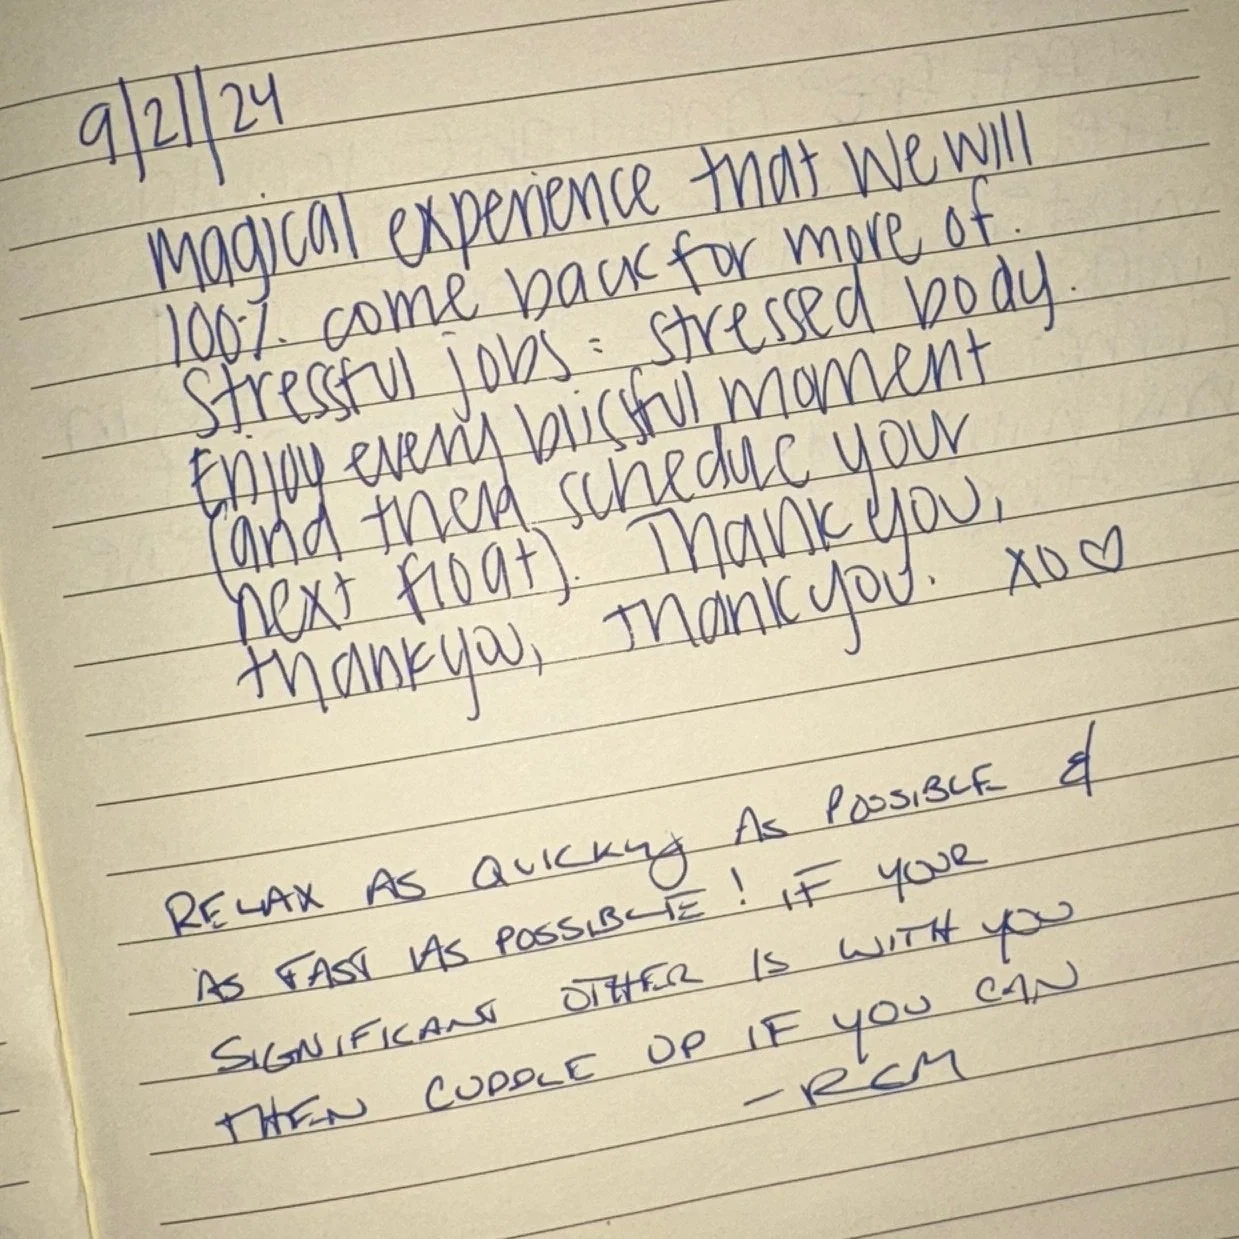 9/21/24
Magical experience that we will
100% come back for more of.
Stressful jobs = stressed body.
Enjoy every blissful moment
(and then schedule your
next float). Thank you,
thank you, thank you. XO♡
RELAX AS QUICKLY AS POSSIBLE &
AS FAST AS POSSIBLE! IF YOUR
SIGNIFICANT OTHER IS WITH YOU
THEN CUDDLE UP IF YOU CAN
-RCM